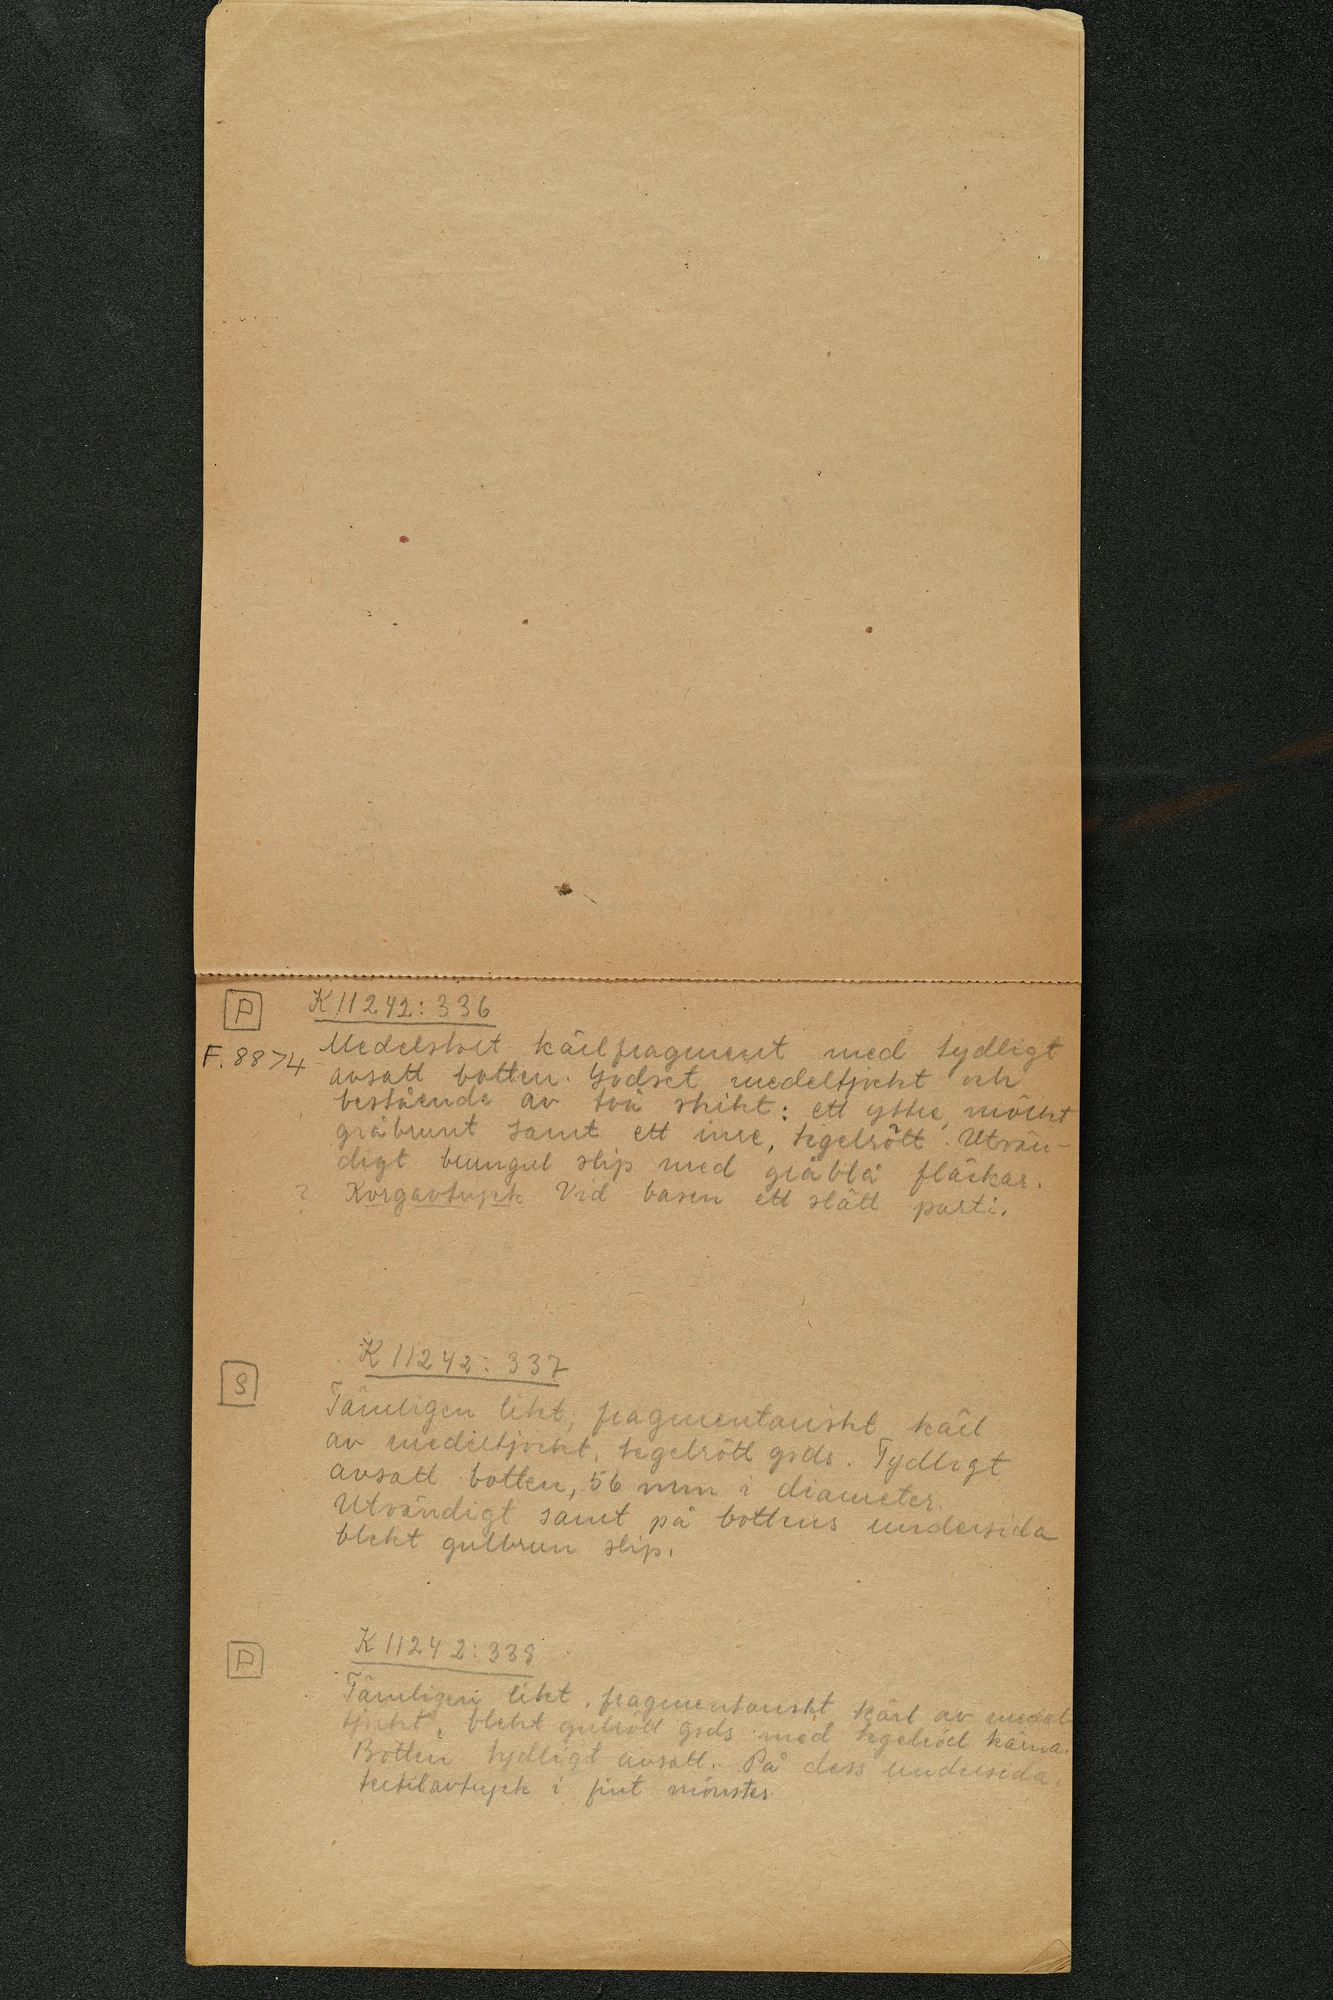 P K 11242:336
F. 8874 Medelstort kärlfragment med tydligt
avsatt botten. Godset medeltjockt och
bestående av två skikt: ett yttre, mörkt
gråbrunt samt ett inre, tegelrött. Utvän-
digt brungul slip med gråblå fläckar.
? Korgavtryck Vid basen ett slätt parti.
K 11242:337
S
Tämligen litet, fragmentariskt kärl
av medeltjockt, tegelrött gods. Tydligt
avsatt botten, 56 mm i diameter.
Utvändigt samt på bottens undersida
blekt gulbrun slip.
K 11242:338
P
Tämligen litet, fragmentariskt kärl av medel-
tjockt, blekt gulrött gods med tegelröd kärna.
Botten tydligt avsatt. På dess undersida
textilavtryck i fint mönster.